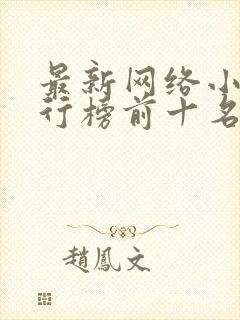 最新网络小
行榜前十名
趙鳳文